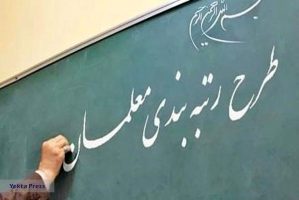 بسم الله الرحمن الرحیم
طرح رتبه بندی معلمان
Yekta Press